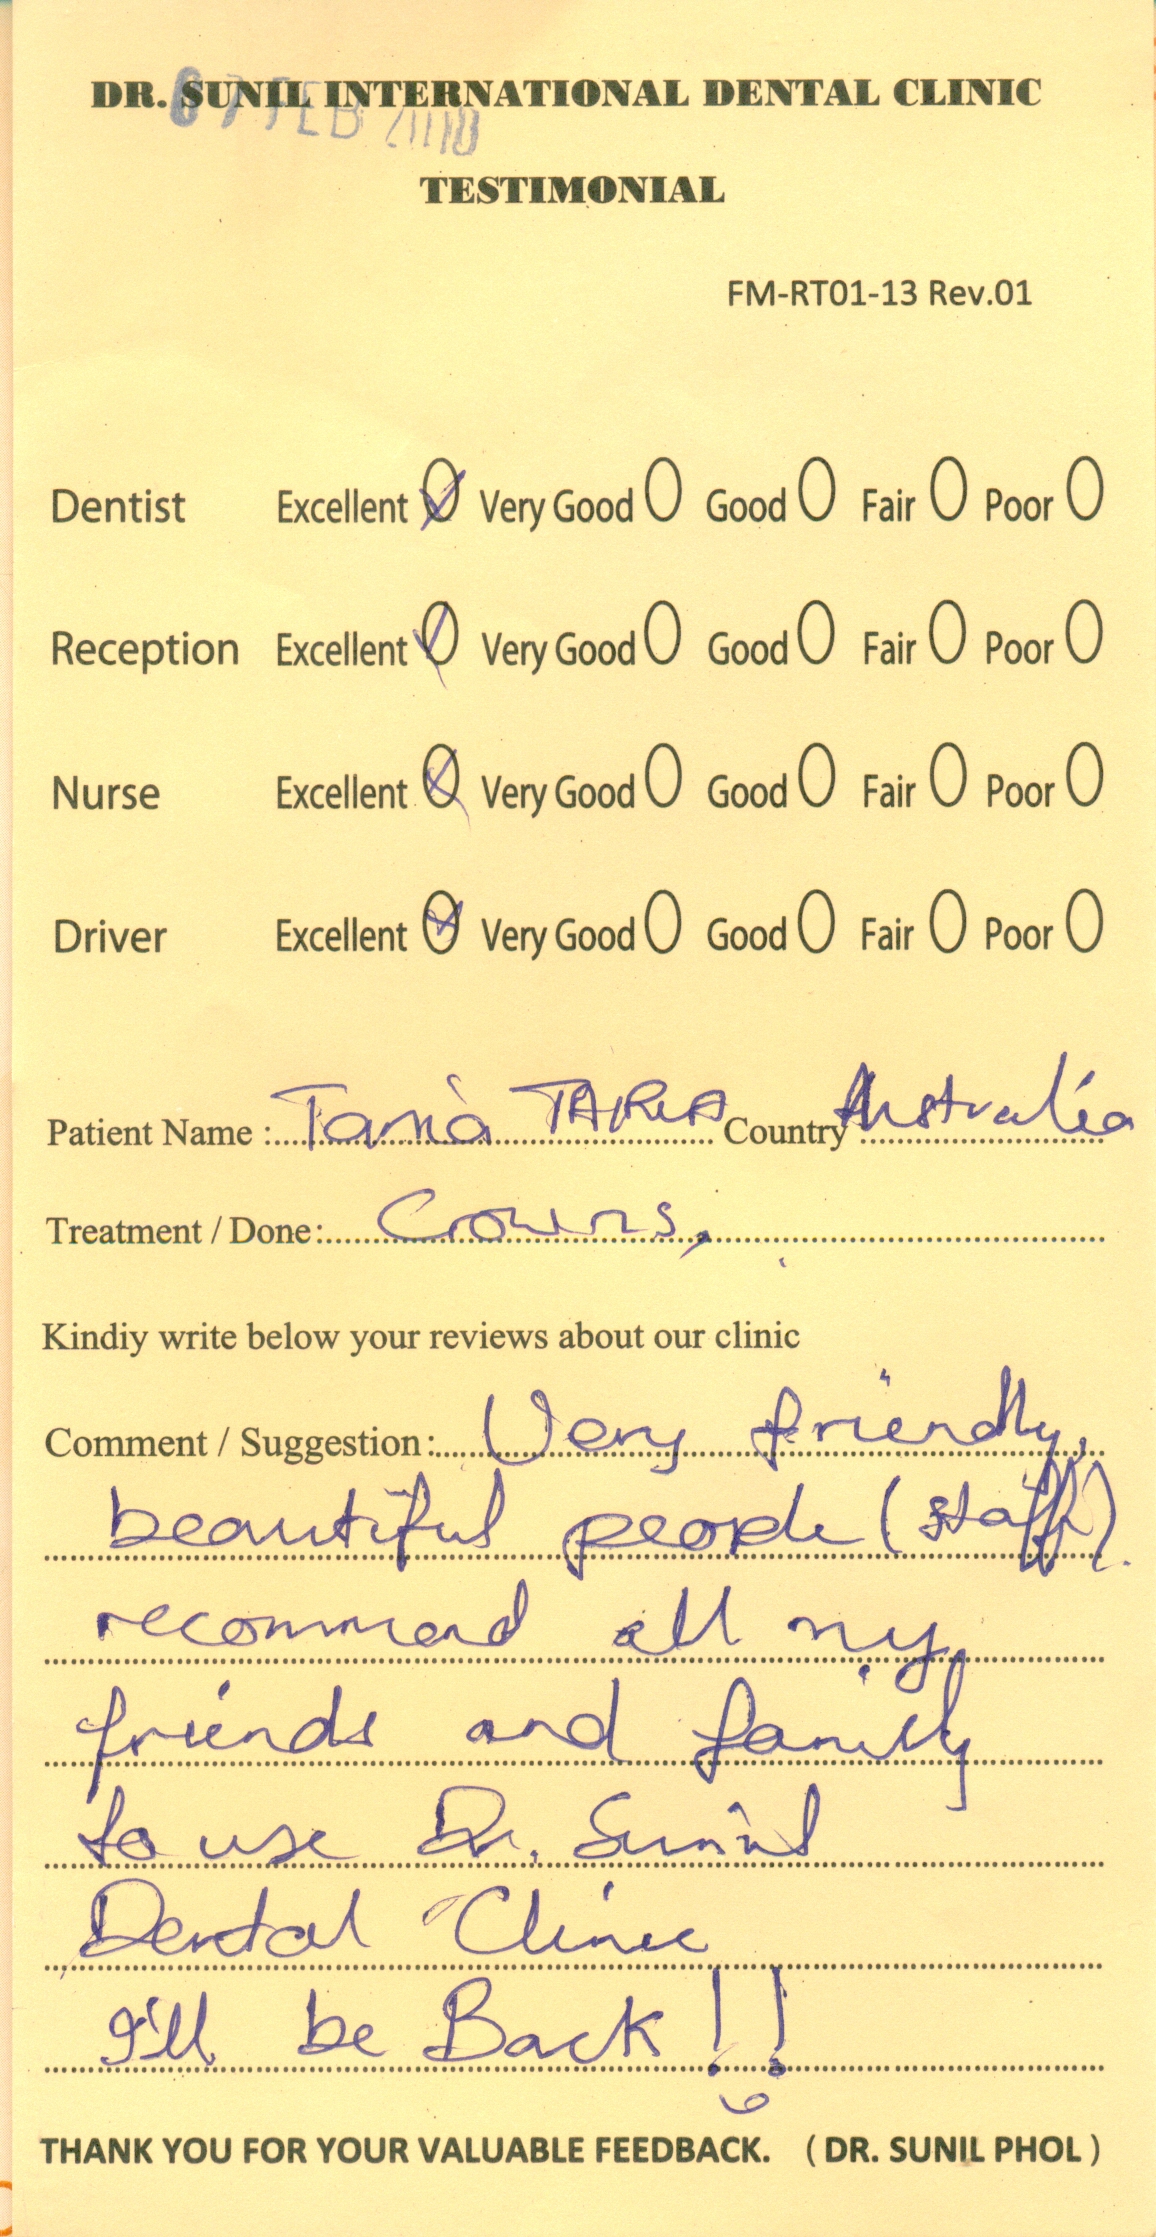 DR. SUNIL INTERNATIONAL DENTAL CLINIC
07 FEB
TESTIMONIAL
FM-RT01-13 Rev.01
Dentist Excellent Very Good Good Fair Poor
Reception Excellent Very Good Good Fair Poor
Nurse Excellent Very Good Good Fair Poor
Driver Excellent Very Good Good Fair Poor
Patient Name : Tania Country Australia
Treatment / Done: Crowns,
Kindiy write below your reviews about our clinic
Comment / Suggestion: Very friendly,
beautiful people (staff).
recommend all my
friends and family
to use Dr. Sunil
Dental Clinic
I'll be Back!!
THANK YOU FOR YOUR VALUABLE FEEDBACK. ( DR. SUNIL PHOL )